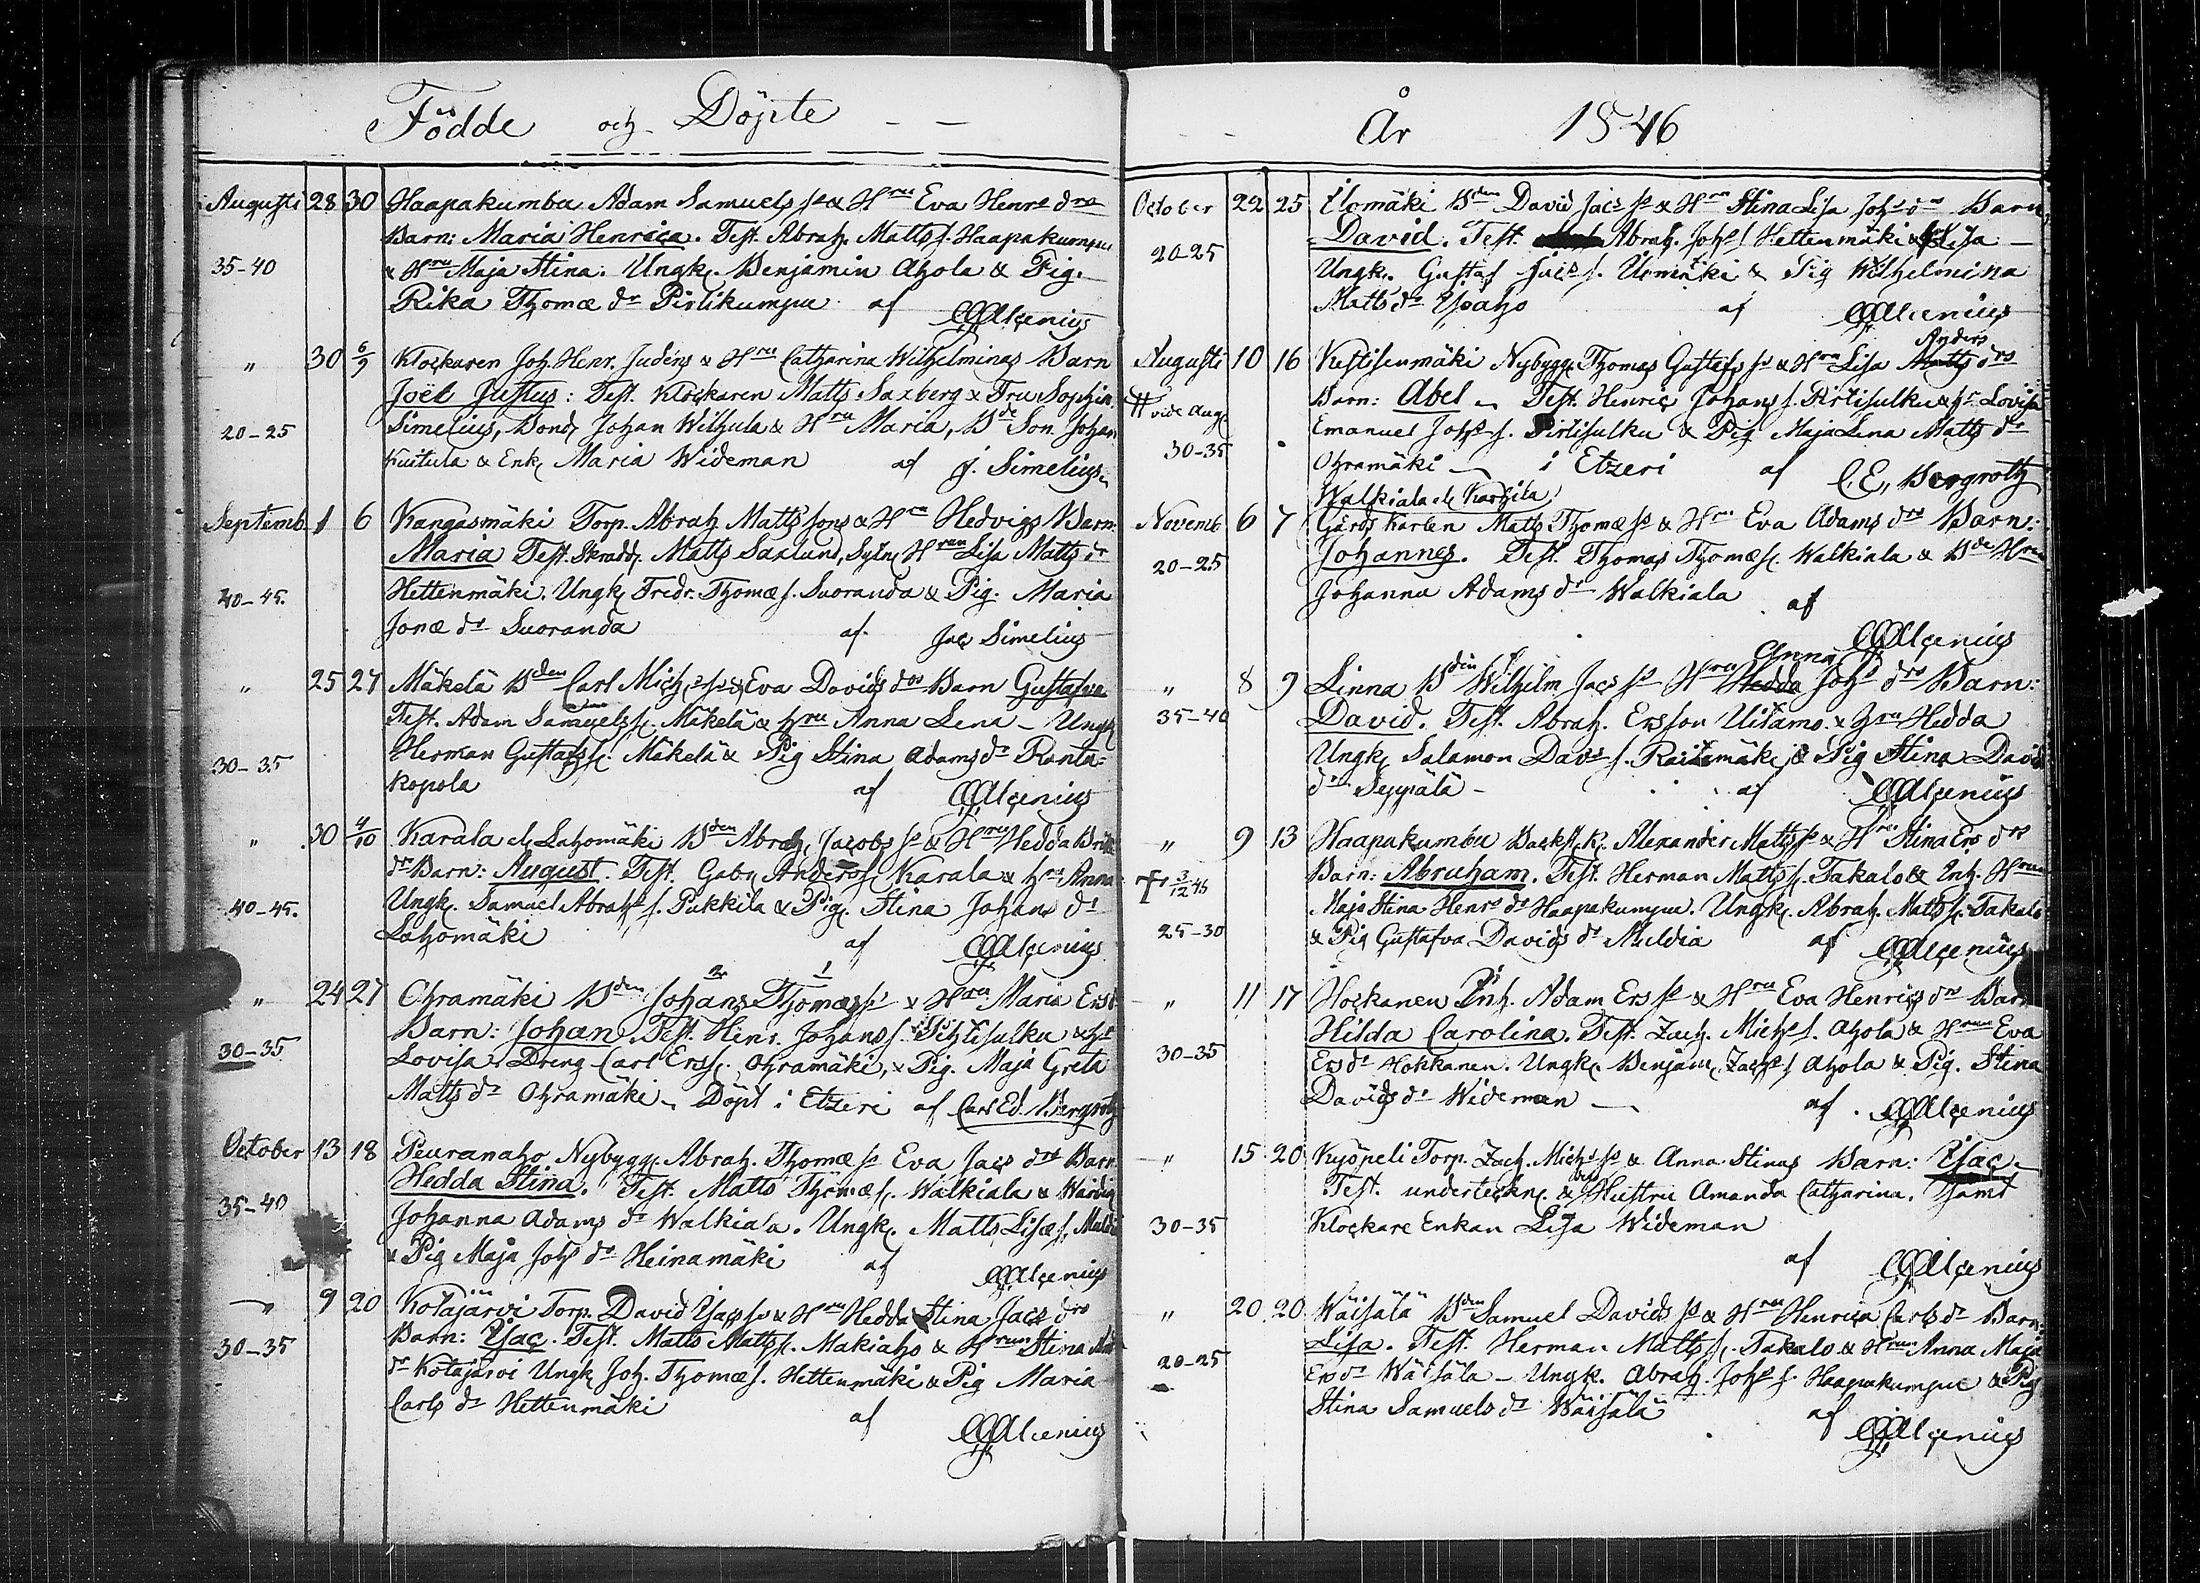 Födde och Döpte
Augusti 28 30 Haapakumba Adam Samuels s. & Hru Eva Henrs drs
Barn: Maria Henrica. Test. Abrah. Matts s. Haapakumpu
35-40 & Hru Maja Stina. Ungk. Benjamin Ahola & Pig.
Rika Thomæ dr Pirttikumpu af Alcenius
" 30 6/9 Klockaren Joh. Henr. Judéns & Hru Catharina Wilhelminas Barn
Joël Justus: Test. Klockaren Matts Saxberg & Fru Sophia
20-25 Simelius, Bond. Johan Wilhula & Hru Maria, Bde Son Johan
Kuitula & Enk. Maria Wideman af J. Simelius
Septemb. 1 6 Kangasmäki Torp. Abrah Matts sons & Hru Hedvigs Barn
Maria Test. Skrädd. Matts Saxlund, Hrun Lisa Matts dr
40-45. Hettenmäki. Ungk. Fredr. Thomæ s. Suoranda & Pig. Maria
Jonæ dr Suoranda af Jac Simelius
" 25 27 Mäkelä Bden Carl Michs s. & Eva Davids drs Barn Gustafva
Test. Adam Samuels s. Mäkelä & hru Anna Lena - Ungk
30-35 Herman Gustafs s. Mäkelä & Pig Stina Adams dr Ranta=
kopola af Alcenius
" 30 4/10 Karala el. Lahomäki Bden Abrah. Jacobs s. & Hru Hedda
dr Barn: August. Test. Gabr Anders s. Karala & hru Anna
40-45. Ungk. Samuel Abrahs s. Pukkila & Pig. Stina Johans dr
Lahomäki af Alcenius
" 24 27 Ohramäki Bden Johans 2 Thomæ 1 s. & Hru Maria Ers
Barn: Johan. Test. Henr. Johans s. Pirtisulku & h.
30-35 Lovisa Dreng Carl Ers s. Ohramäki, & Pig. Maja Greta
Matts dr Ohramäki. Döpt i Etzeri af Carl Ed. Bergroth
October 13 18 Peuranaho Nybygg. Abrah. Thomæ s. Eva Jacs drs Barn
Hedda Stina. Test. Matts Thomæ s. Walkiala & Wärdin
35-40 Johanna Adams dr Walkiala. Ungk. Matts
& Pig Maja Johs dr Heinamäki af Alcenius
" 9 20 Kotajärvi Torp. David Isacs s. & Hru Hedda Stina Jacs drs
30-35 Barn: Isac. Test. Matts Matts s. Makiaho & Hrun Stina
dr Kotajärvi Ungk Joh. Thomæ s. Hettenmäki & Pig Maria
Carls dr Hettenmäki af Alcenius
År 1846
October 22 25 Ilomäki Bden David Jacs s. & Hru Stina Lisa Johs drs Barn
David. Test. Abrah. Johs s. Hettenmäki & Lisa
20-25 Ungk. Gustaf Jacs s. & Pig Wilhelmina
Matts dr Ysaho af Alcenius
Anders
Augusti 10 16 Kestisenmäki Nybygg. Thomas Gustafs s. & Hru Lisa Matts drs
# vide Aug. Barn: Abel. Test. Henric Johans s. Pirtisulku & hr Lovisa
Emanuel Johs s. Pirtisulku & Pig Maja Lena Matts dr
30-35 Ohramäki i Etzeri af C. E. Bergroth
Walkiala el. Karhila
Novemb 6 7 Gårds Karlen Matts Thomæ s. & Hru Eva Adams drs Barn:
Johannes. Test. Thomas Thomæ s. Walkiala & Bde Hru
20-25 Johanna Adams dr Walkiala af
Alcenius
Anna
" 8 9 Linna Bden Wilhelm Jacs s. Hru Hedda Johs drs Barn:
35-40 David. Test. Abrah. Ersson Uitamo & hru Hedda
Ungk. Salamon Davs s. & Pig Stina David
dr Seppälä af Alcenius
" 9 13 Haapakumbu Backst. K. Alexander Matts s. & Hru Stina Ers drs
† 3/12 46 Barn: Abraham. Test. Herman Matts s. Takalo & Inh. Hrun
Maja Stina Henrs dr Haapakumpu. Ungk. Abrah. Matts s. Takalo
25-30 & Pig Gustafva Davids dr Muldia af Alcenius
" 11 17 Hockanen Inh. Adam Ers s. & Hru Eva Henrics drs Barn
Hilda Carolina. Test. Zach. Michs s. Ahola & Hrun Eva
30-35 Ers dr Hokkanen. Ungk. Benjam. Zachs s. Ahola & Pig. Stina
Davids dr Wideman af Alcenius
" 15 20 Kyöpeli Torp. Zach. Michs s. & Anna Stinas Barn: Isac.
Test. underteckn. & dess Hustru Amanda Catharina. samt
30-35 Klockare Enkan Lisa Wideman
af Alcenius
" 20 20 Wäisälä Bden Samuel Davids s. & Hru Henrica Carls dr Barn
Lisa. Test. Herman Matts s. Takalo & Hrun Anna Maja
20-25 Ers dr Wäisälä - Ungk. Abrah. Johs s. Haapakumpu & Pig
Stina Samuels dr Wäisälä af Alcenius